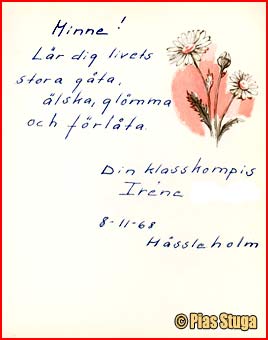 Minne!
Lär dig livets
stora gåta,
älska, glömma
och förlåta.
Din klasskompis
Iréne
8-11-68
Hässleholm
© Pias Stuga